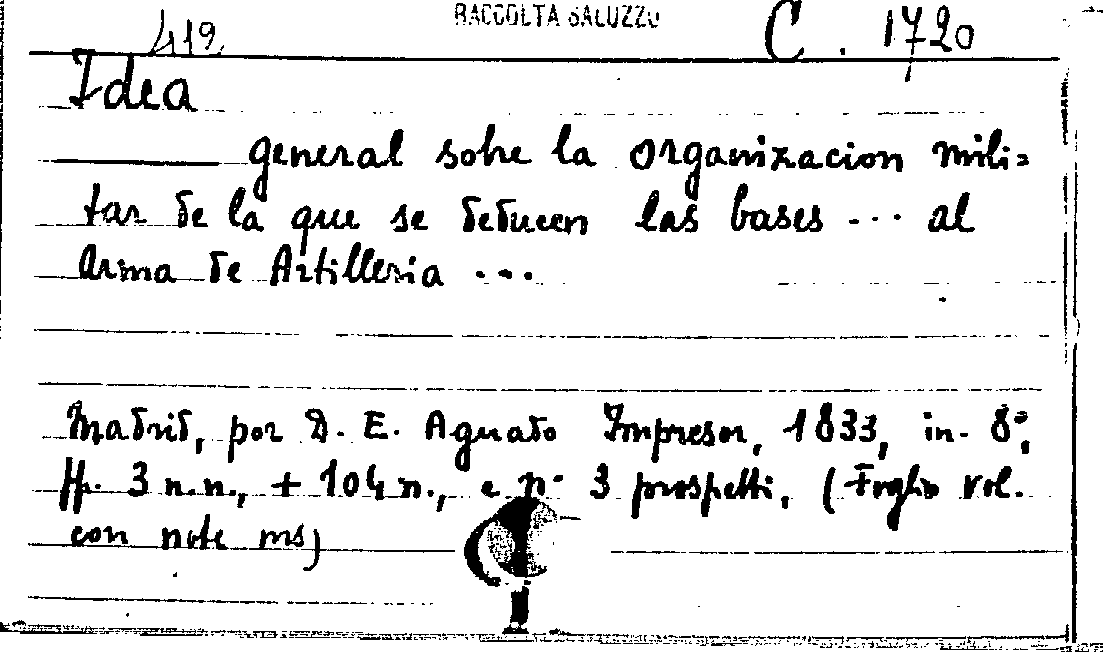 419 RACCOLTA SALUZZO C. 1720
Idea
general sobre la organizacion mili=
tar de la que se deducen las bases ... al
arma de Artilleria ...
Madrid, por D. E. Aguado Impresor, 1833, in-8°,
pp. 3 n.n., + 104 n., e n° 3 prospetti. (Foglio vol.
con note ms)